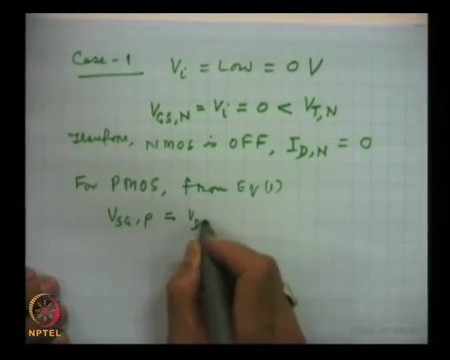 Case-1 Vi = Low = 0 V
VGS,N = Vi = 0 < VT,N
Therefore, NMOS is OFF, ID,N = 0
For PMOS, from Eq(1)
VSG,P = VD
NPTEL